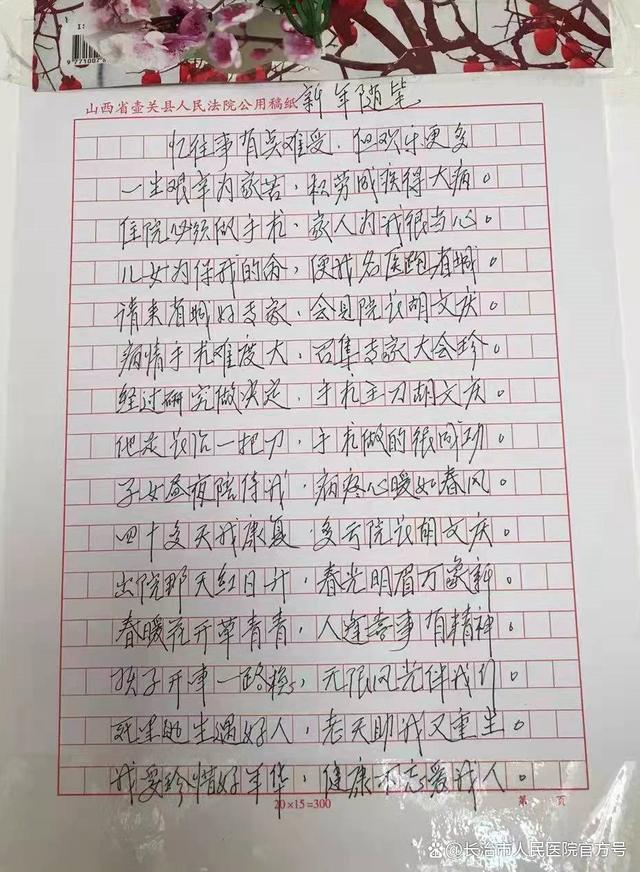 9 771007
山西省壶关县人民法院公用稿纸 新年随笔
忆往事有点难受，但欢乐更多
一生艰辛为家苦，积劳成疾得大病。
住院必须做手术，家人为我很当心。
儿女为保我的命，便找名医跑省城
请来省城好专家，会见院长胡文庆。
病情手术难度大，召集专家大会珍。
经过研究做决定，手术主刀胡文庆。
他是长治一把刀，手术做的很成功。
子女昼夜陪侍我，病疼心暖如春风。
四十多天我康复，多亏院长胡文庆。
出院那天红日升，春光明眉万象新。
春暖花开草青青，人逢喜事有精神。
孩子开车一路稳，无限风光伴我行。
死里逃生遇好人，老天助我又重生。
我要珍惜好年华，健康不忘爱我人。
20×15=300 第 页
@长治市人民医院官方号